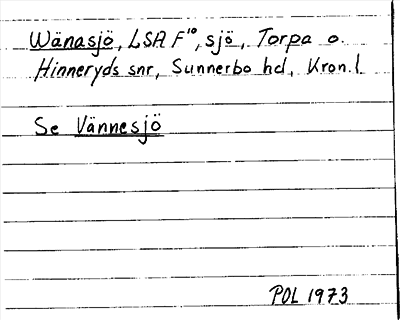 Wänasjö, LSA F¹⁰, sjö, Torpa o.
Hinneryds snr, Sunnerbo hd, Kron. l.
Se Vännesjö
POL 1973